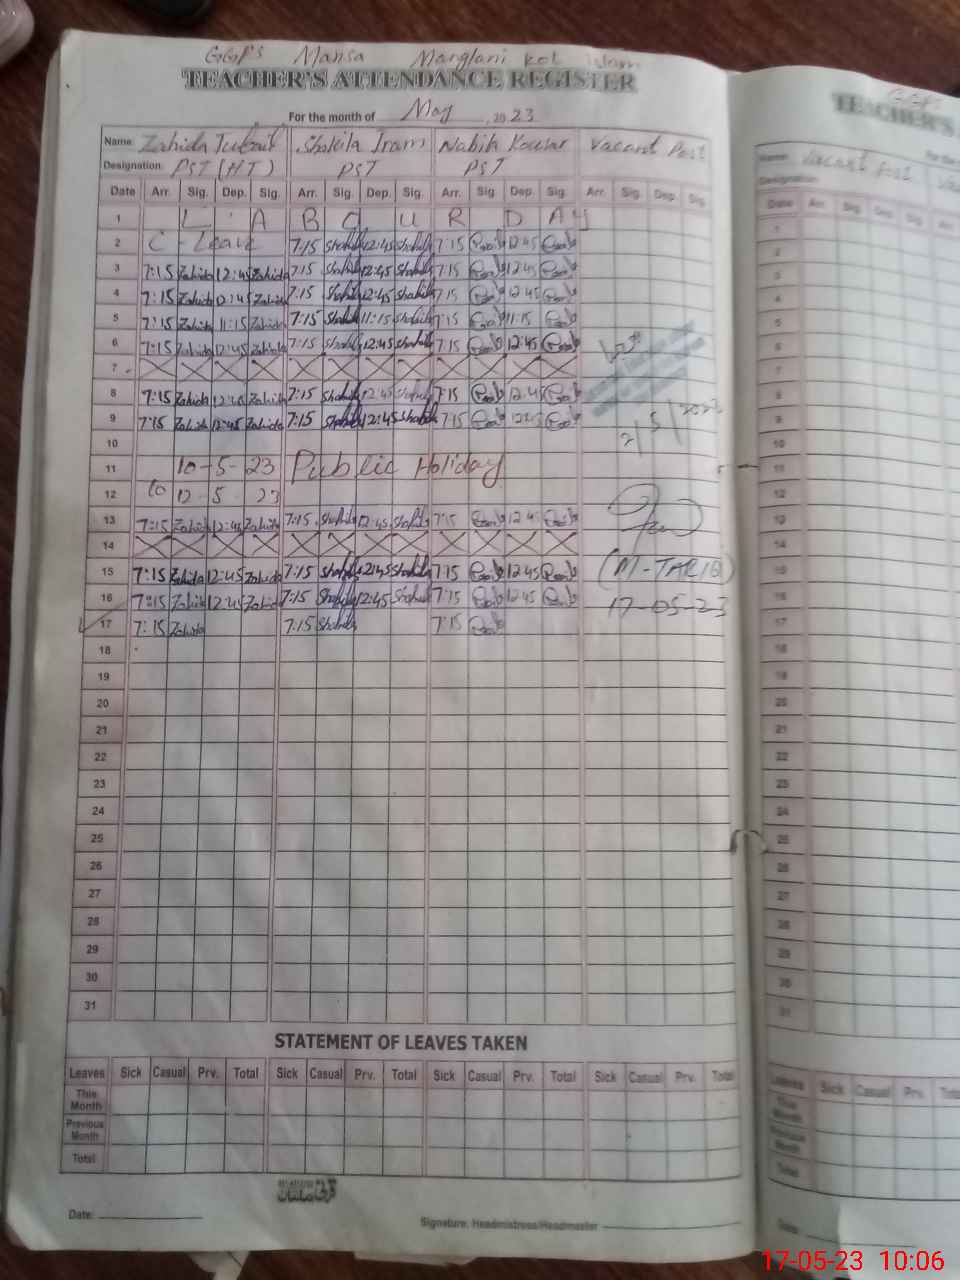 GGPS Mansa Marglani kot islam
TEACHER'S ATTENDANCE REGISTER
For the month of May, 2023
Name: Zahida Shakila Iram Nabila Kousar Vacant Post
Designation: PST (HT) PST PST
Date Arr. Sig. Dep. Sig. Arr. Sig. Dep. Sig. Arr. Sig. Dep. Sig. Arr. Sig. Dep. Sig.
1 L A B O U R D A y
2 C - Leave 7:15 Shakila 12:45 Shakila 7:15 12:45
3 7:15 Zahida 12:45 Zahida 7:15 Shakila 12:45 Shakila 7:15 12:45
4 7:15 Zahida 12:45 Zahida 7:15 Shakila 12:45 Shakila 7:15 12:45
5 7:15 Zahida 11:15 Zahida 7:15 Shakila 11:15 Shakila 7:15 11:15
6 7:15 Zahida 12:45 Zahida 7:15 Shakila 12:45 Shakila 7:15 12:45
7
8 7:15 Zahida 12:45 Zahida 7:15 Shakila 12:45 Shakila 7:15 12:45
9 7:15 Zahida 12:45 Zahida 7:15 Shakila 12:45 Shakila 7:15 12:45
2/5/2023
10
11 10-5-23 Public Holiday
12 to 12-5-23
13 7:15 Zahida 12:45 Zahida 7:15 Shakila 12:45 Shakila 7:15 12:45
14
15 7:15 Zahida 12:45 Zahida 7:15 Shakila 12:45 Shakila 7:15 12:45 (M-TARIQ)
16 7:15 Zahida 12:45 Zahida 7:15 Shakila 12:45 Shakila 7:15 12:45 17-05-23
17 7:15 Zahida 7:15 Shakila 7:15
18
19
20
21
22
23
24
25
26
27
28
29
30
31
STATEMENT OF LEAVES TAKEN
Leaves Sick Casual Prv. Total Sick Casual Prv. Total Sick Casual Prv. Total Sick Casual Prv. Total
This Month
Previous Month
Total
Date:
Signature: Headmistress/Headmaster
GGPS
TEACHER'S
Name: Vacant Post
Designation:
Date Arr. Sig. Dep. Sig. Arr.
Leaves Sick Casual Prv.
This Month
Previous Month
Total
Date:
17-05-23 10:06